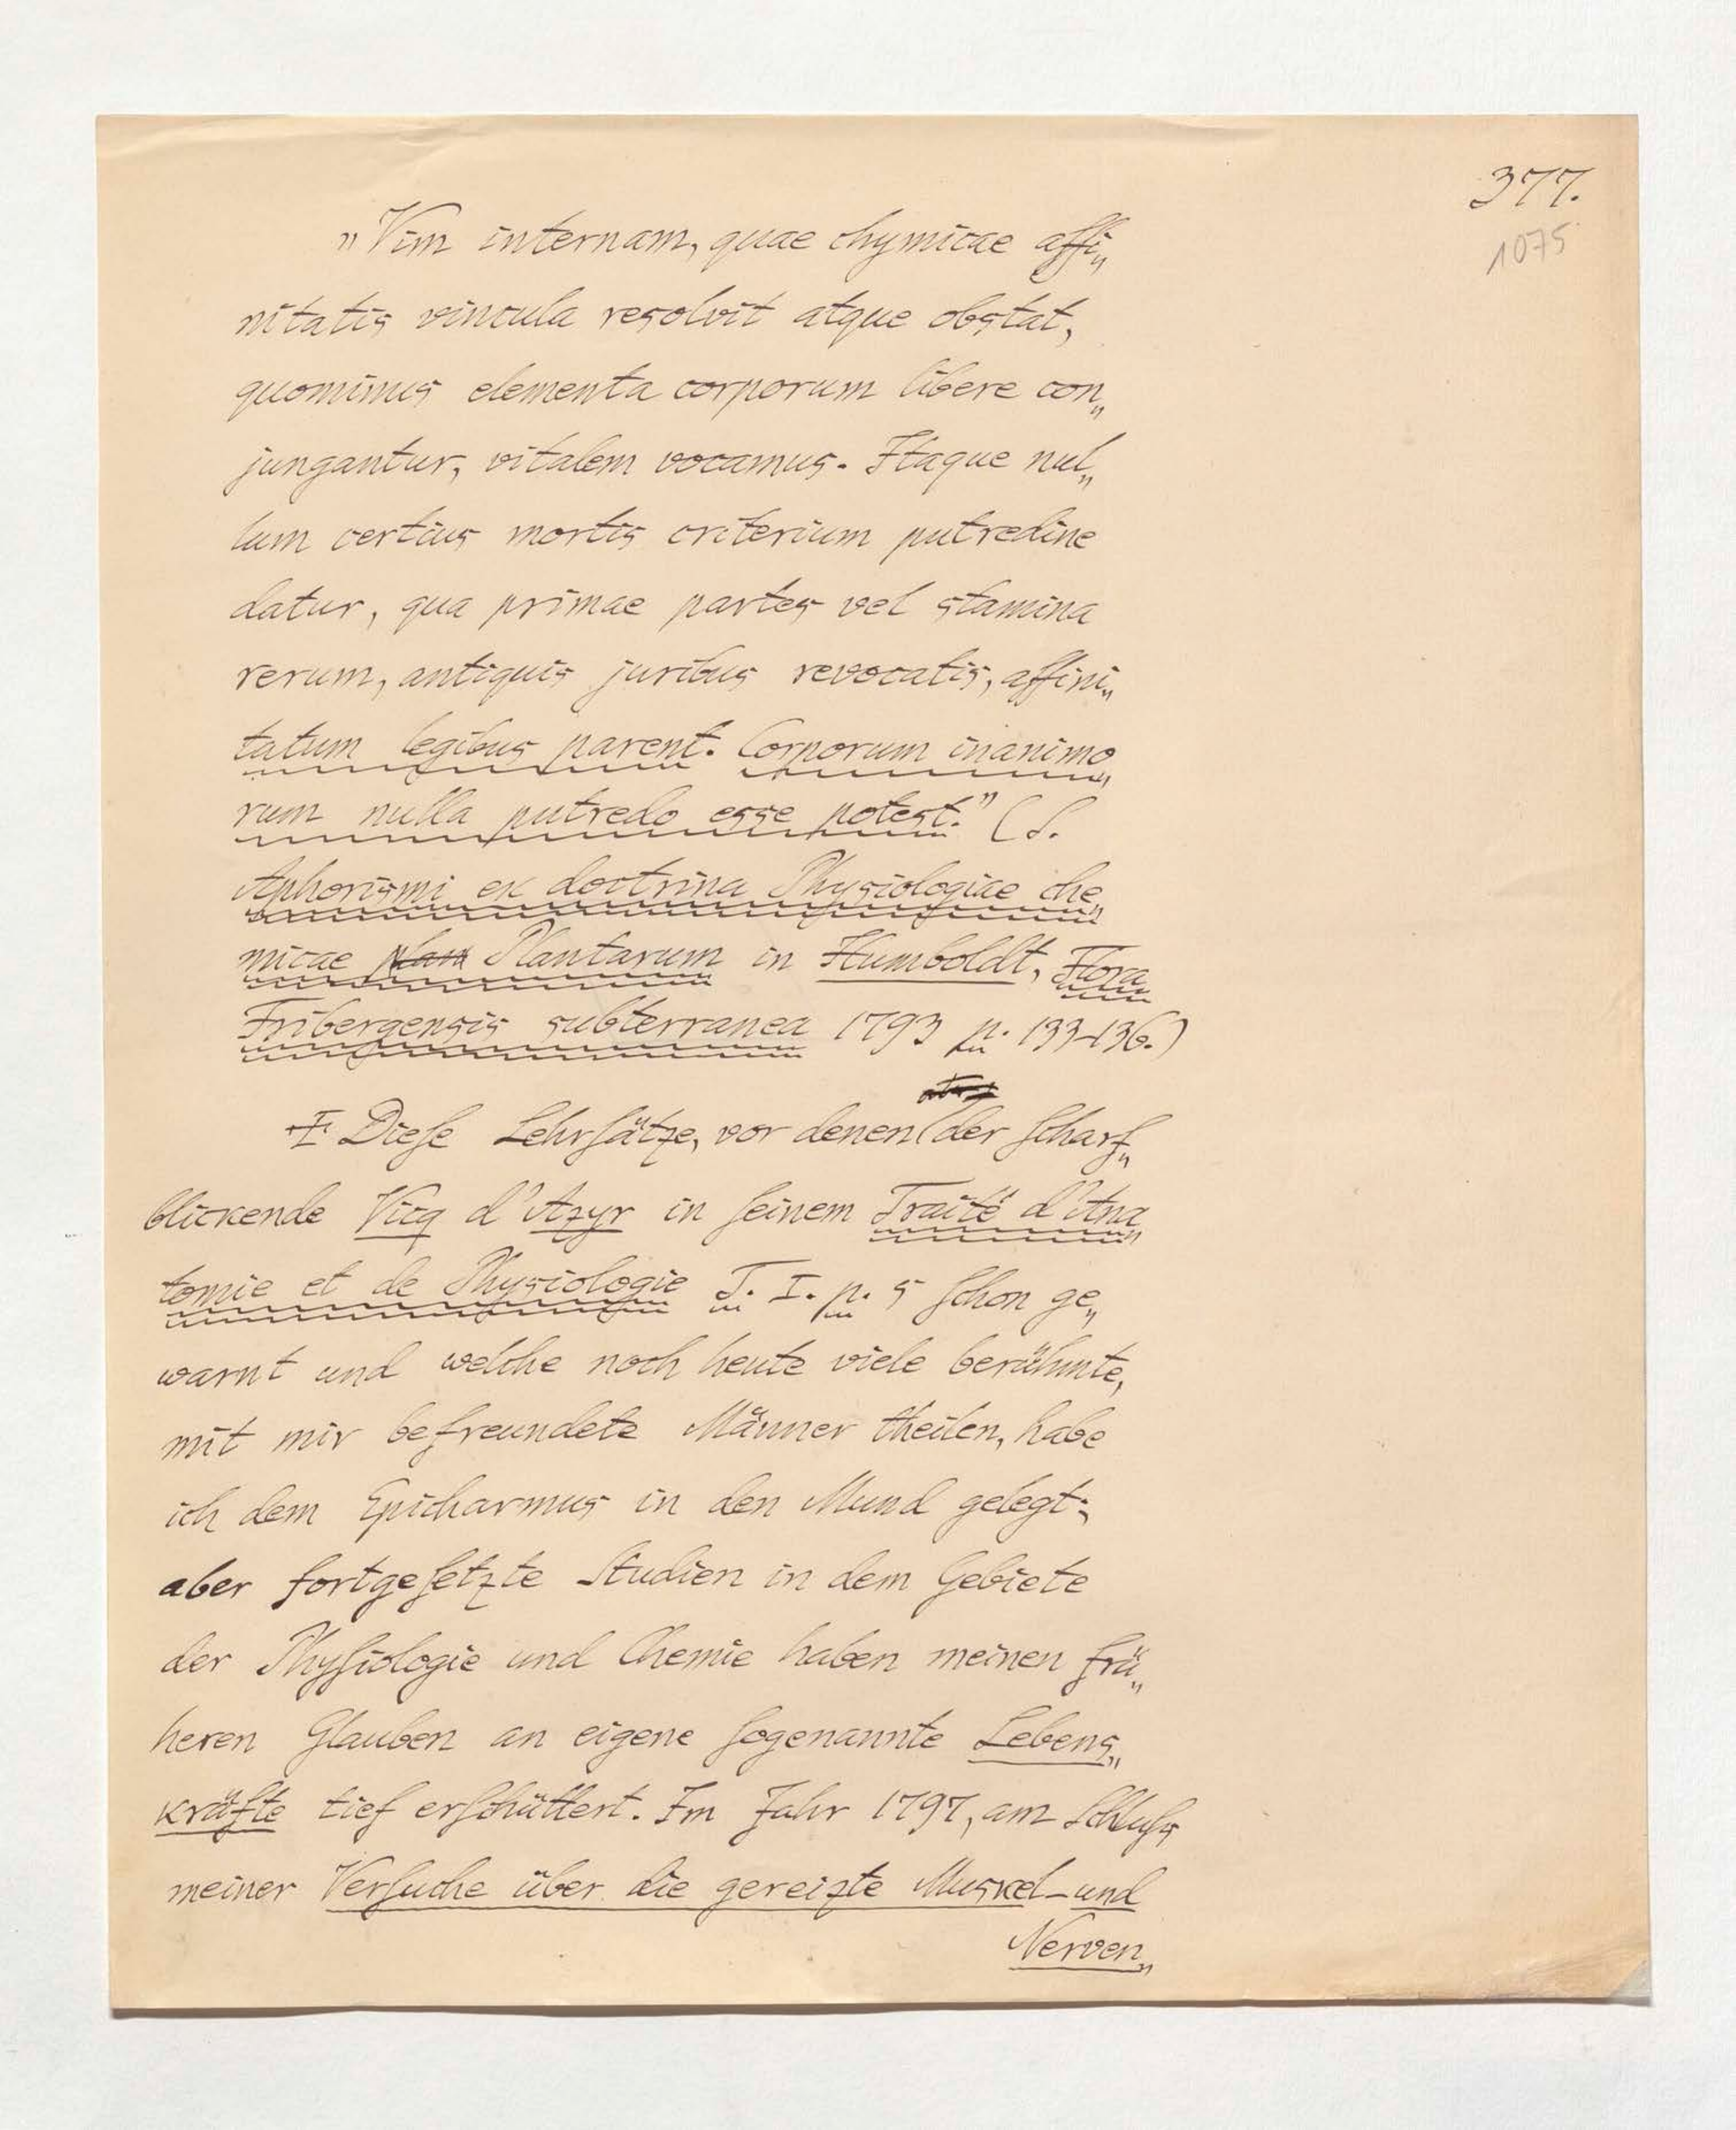 377.
1075
„Vim internam, quae chymicae affi„
nitatis vincula resolvit atque obstat,
quominus elementa corporum libere con„
jungantur, vitalem vocamus. Itaque nul„
lum certius mortis criterium putredine
datur, qua primae partes vel stamina
rerum, antiquis juribus revocatis, affini„
tatum legibus parent. Corporum inanimo„
rum nulla putredo esse potest.” (S.
Aphorismi ex doctrina Physiologiae che„
micae Plantarum in Humboldt, Flora
Fribergensis subterranea 1793 p. 133-136.)
Dieſe Lehrſätze, vor denen der ſcharf„
blickende Vicq d'Azyr in ſeinem Traité d'Ana„
tomie et de Physiologie T. I. p. 5 ſchon ge„
warnt und welche noch heute viele berühmte,
mit mir befreundete Männer theilen, habe
ich dem Epicharmus in den Mund gelegt;
aber fortgeſetzte Studien in dem Gebiete
der Phyſiologie und Chemie haben meinen frü„
heren Glauben an eigene ſogenannte Lebens„
kräfte tief erſchüttert. Im Jahr 1797, am Schluſs
meiner Verſuche über die gereizte Muskel- und
Nerven„